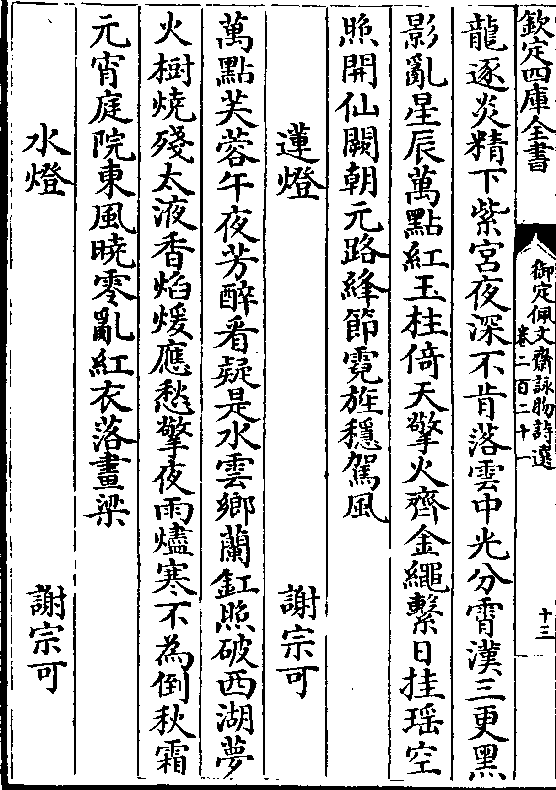 欽定四庫全書
御定佩文齋詠物詩選
卷二百二十一
十三
龍逐炎精下紫宮夜深不肯落雲中光分霄漢三更黑
影亂星辰萬點紅玉柱倚天擎火齊金繩繫日挂瑶空
照開仙闕朝元路絳節霓旌穩駕風
蓮燈 謝宗可
萬點芙蓉午夜芳醉看疑是水雲鄉蘭釭照破西湖夢
火樹燒殘太液香焰煖應愁擎夜雨燼寒不為倒秋霜
元宵庭院東風曉零亂紅衣落畫梁
水燈 謝宗可